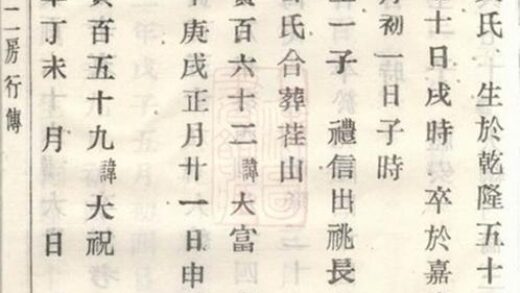 氏生於乾隆五十
十日戌時卒於嘉
初一日子時
一子禮信出祧長
氏合葬荏山
百六十二諱大富
庚戌正月廿一日申
百五十九諱大祝
丁未十月日
二房行傳